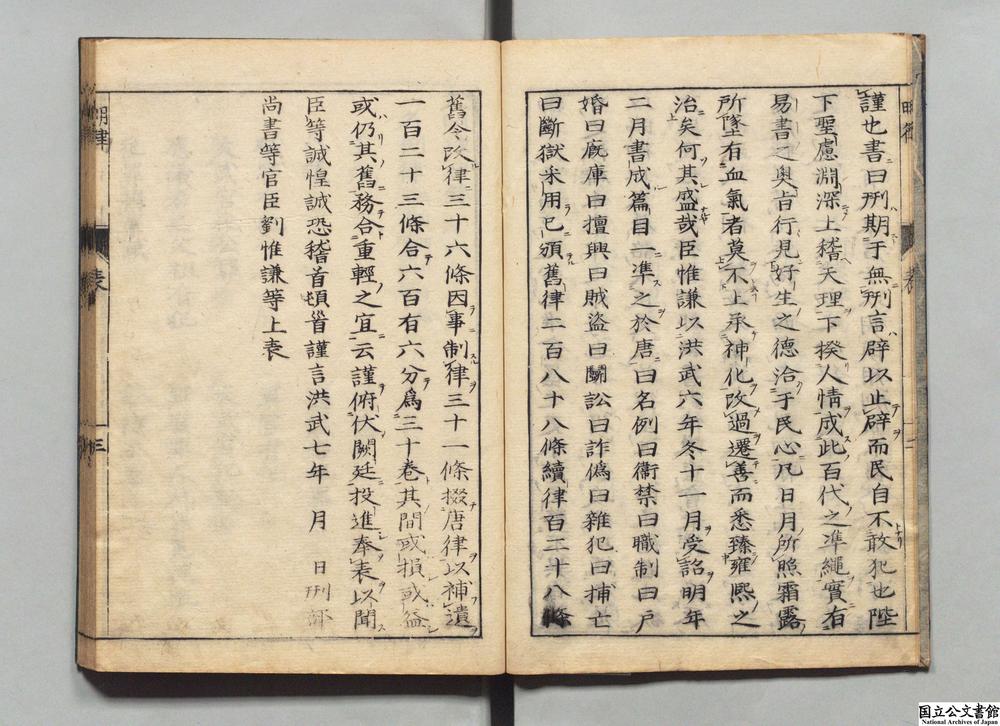 謹也書曰刑期于無刑言辟以止辟而民自不敢犯也陛
下聖慮淵深上稽天理下揆人情成此百代之準繩實有
易書之奥旨行見好生之德洽于民心凡日月所照霜露
所墜有血氣者莫不上承神化改過遷善而悉臻雍熙之
治矣何其盛哉臣惟謙以洪武六年冬十一月受詔明年
二月書成篇目一準之於唐曰名例曰衞禁曰職制曰戸
婚曰厩庫曰擅興曰賊盜曰鬪訟曰詐偽曰雜犯曰捕亡
曰斷獄采用已頒舊律二百八十八條續律百二十八條
舊令改律三十六條因事制律三十一條掇唐律以補遺
一百二十三條合六百有六分爲三十卷其間或損或益
或仍其舊務合重輕之宜云謹俯伏闕廷投進奉表以聞
臣等誠惶誠恐稽首頓首謹言洪武七年 月 日刑部
尚書等官臣劉惟謙等上表
明律
表
三
国立公文書館
National Archives of Japan